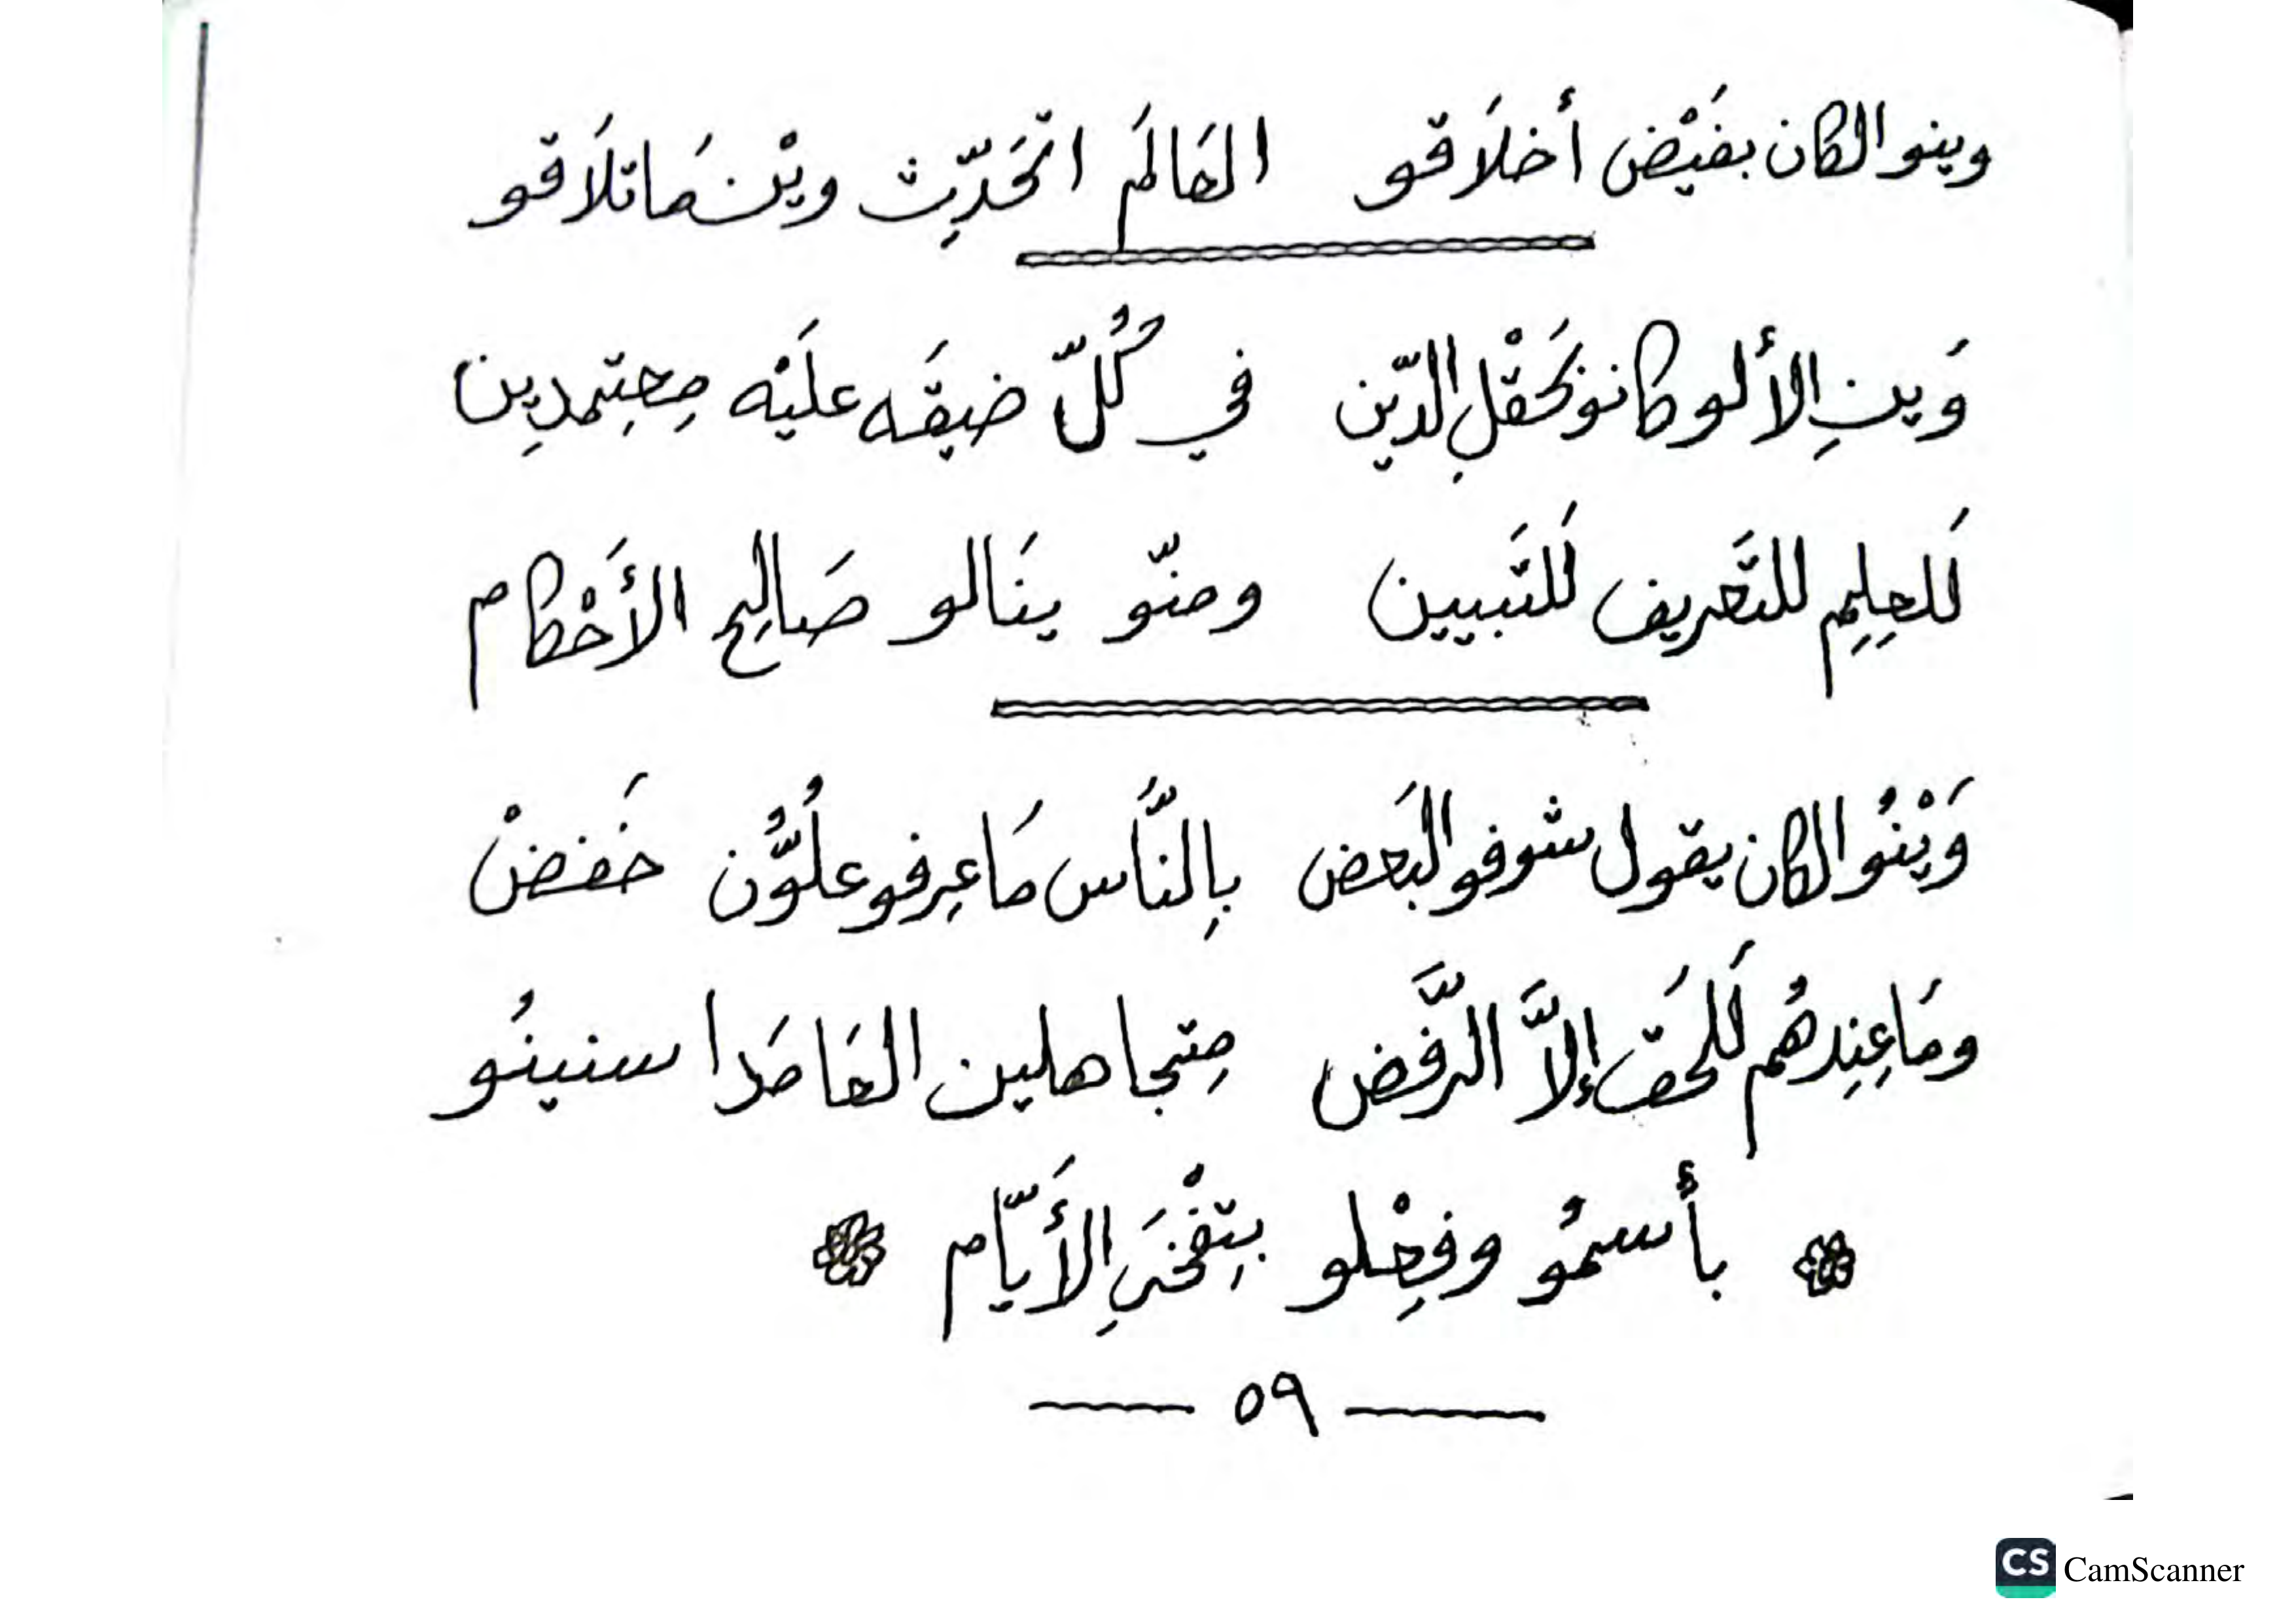 وينو الكان بفَيْض أخلَاقو   العَالَم اتْحَدِّث ويْن مَا تلَاقو
وَين الألو كانو بحَقْلِ الدّين   في كُلّ ضيقَه عليْه مِعتِمدِين
لَلعِلِم للتَّعريف لَلتَّبيين   ومنّو ينَالو صَالِح الأَحْكام
وَيْنُو الكان يقول شوفو البَعض   بِالنَّاس مَا عِرفو علُوُّن خَفضْ
ومَا عِندهُم لَلحَق إلاَّ الرَّفض   مِتجاهلين العَامَدا سنينُو
بأسمُو وفِعْلو بتِفْخَرِ الأَيَّام
٥٩
CS CamScanner